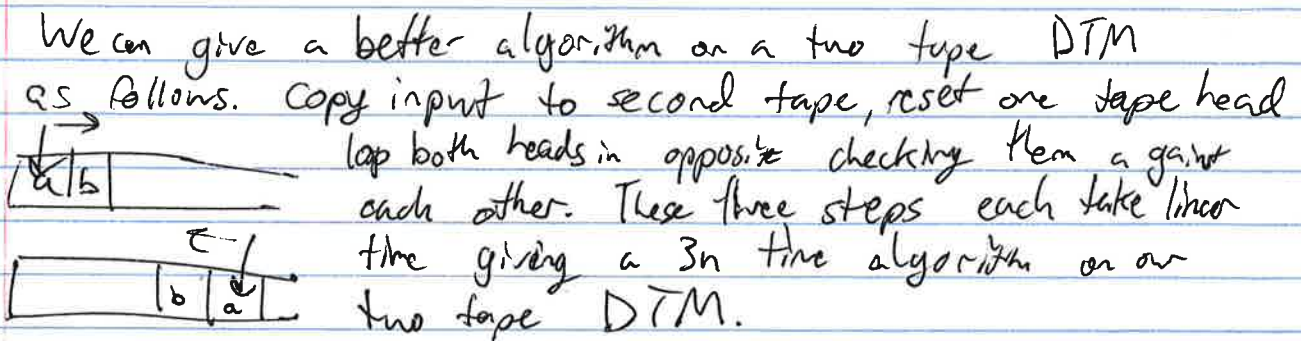 We can give a better algorithm on a two tape DTM
as follows. Copy input to second tape, reset one tape head
lop both heads in opposite checking them a gainst
a b
each other. These three steps each take linear
time giving a 3n time algorithm on our
b a
two tape DTM.